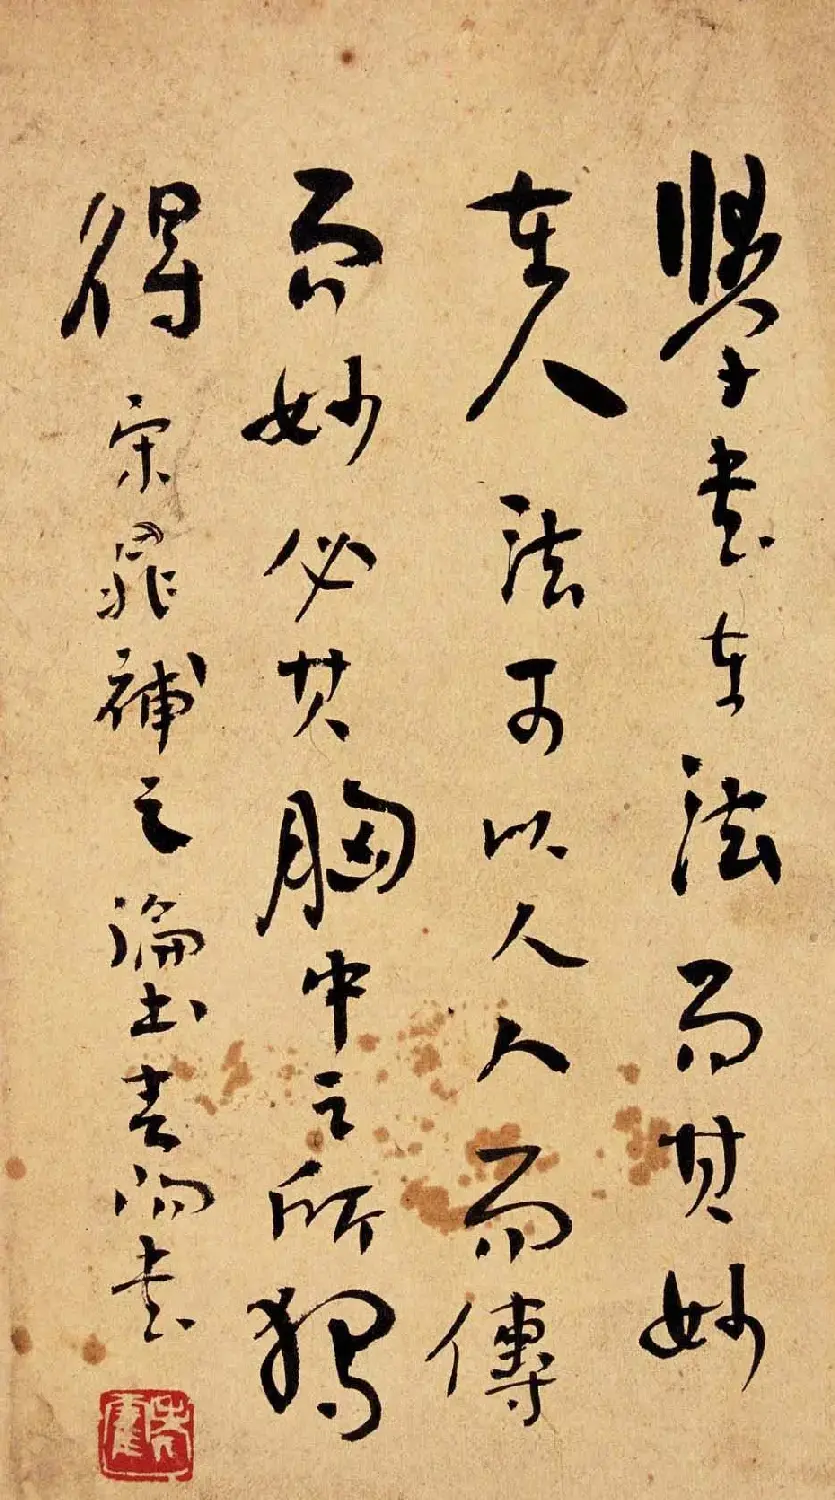 學書在法而其妙
在人法可以人人而傳
而妙必其胸中之所獨
得 宋晁補之論書